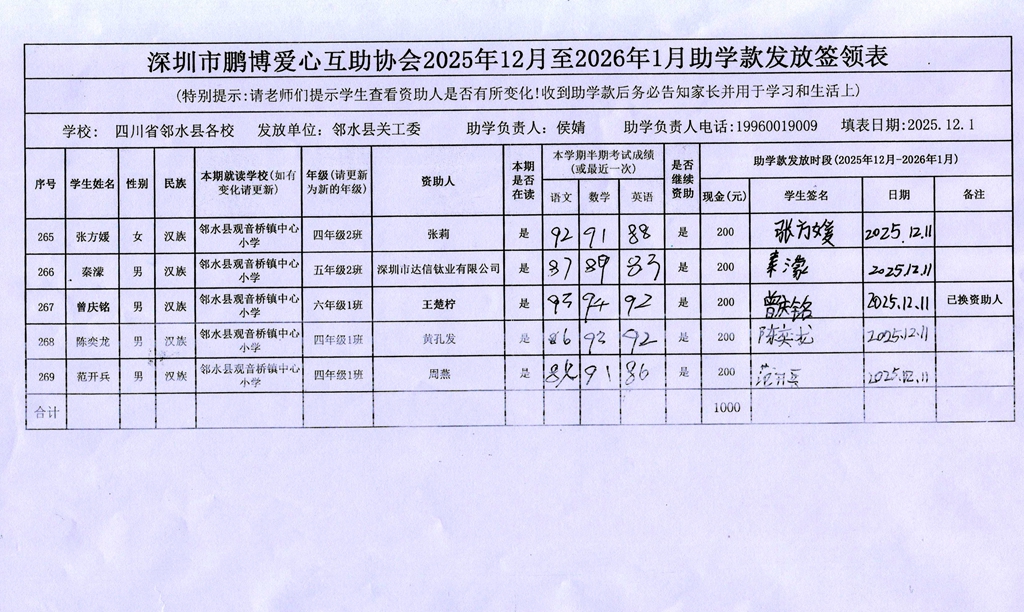 深圳市鹏博爱心互助协会2025年12月至2026年1月助学款发放签领表
(特别提示:请老师们提示学生查看资助人是否有所变化!收到助学款后务必告知家长并用于学习和生活上)
学校: 四川省邻水县各校 发放单位: 邻水县关工委 助学负责人: 侯婧 助学负责人电话:19960019009 填表日期:2025.12.1
序号 学生姓名 性别 民族 本期就读学校(如有变化请更新) 年级(请更新为新的年级) 资助人 本期是否在读 本学期半期考试成绩(或最近一次) 是否继续资助 助学款发放时段(2025年12月-2026年1月)
语文 数学 英语 现金(元) 学生签名 日期 备注
265 张方媛 女 汉族 邻水县观音桥镇中心小学 四年级2班 张莉 是 92 91 88 是 200 张方媛 2025.12.11
266 秦濛 男 汉族 邻水县观音桥镇中心小学 五年级2班 深圳市达信钛业有限公司 是 87 89 83 是 200 秦濛 2025.12.11
267 曾庆铭 男 汉族 邻水县观音桥镇中心小学 六年级1班 王楚柠 是 93 94 92 是 200 曾庆铭 2025.12.11 已换资助人
268 陈奕龙 男 汉族 邻水县观音桥镇中心小学 四年级1班 黄孔发 是 86 93 92 是 200 陈奕龙 2025.12.11
269 范开兵 男 汉族 邻水县观音桥镇中心小学 四年级1班 周燕 是 91 86 是 200 范开兵 2025.12.11
合计 1000